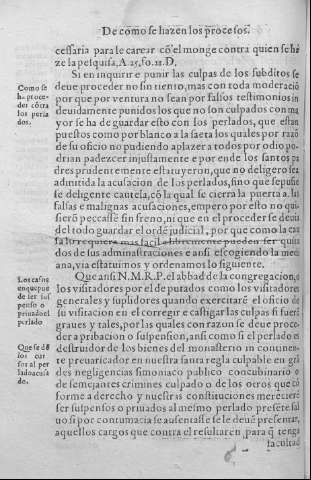 De como se hazen los procesos.
cessaria para le carear cõ el monge contra quien se hi
ze la pesquisa, A. 25, fo. 22. D.
Si en inquirir e punir las culpas de los subditos se
deue proceder no sin tiento, mas con toda moderació
por que por ventura no sean por falsos testimonios in
deuidamente punidos los que no son culpados con ma
yor se ha de guardar esto con los perlados, que estan
puestos como por blanco a la saeta los quales por razõ
de su oficio no pudiendo aplazer a todos por odio po-
drian padezcer injustamente e por ende los santos pa
dres prudentemente estatuyeron, que no deligero sea
admitida la acusacion de los perlados, sino que sepusie
se deligente cautela, cõ la qual se cierra la puerta a las
falsas e malignas acusaciones, empero por esto no qui-
sierõ peccasse sin freno, ni que en el proceder se deuia
del todo guardar el ordẽ judicial, por que como la cau
sa lo requiera mas facil e libremente pueden ser quita
dos de sus administraciones e ansi escogiendo la medi
ana, via estatuimos y ordenamos lo siguiente.
Que ansi N. M. R. P. el abbad de la congregacion, o
los visitadores por el deputados como los visitadores
generales y suplidores quando exercitarẽ el oficio de
su visitacion en el corregir e castigar las culpas si fuerẽ
graues y tales, por las quales con razon se deue proce-
der a pribacion o suspension, ansi como si el perlado es
destruidor de los bienes del monasterio in continen-
te preuaricador en nuestra santa regla culpable en grã
des negligencias simoniaco publico concubinario o
de semejantes crimines culpado o de los otros que cõ
forme a derecho y nuestras constituciones mereciere
ser suspensos o priuados al mesmo perlado presẽte sal
uo si por contumacia se ausentasse se le deuẽ presentar,
aquellos cargos que contra el resultaren, para q̃ tenga
facultad
Como se
ha proce-
der cõtra
los perla
dos.
Los casos
en que pue
de ser sus
penso o
priuado el
perlado
Que se dẽ
los car
gos al per
lado acusa
do.